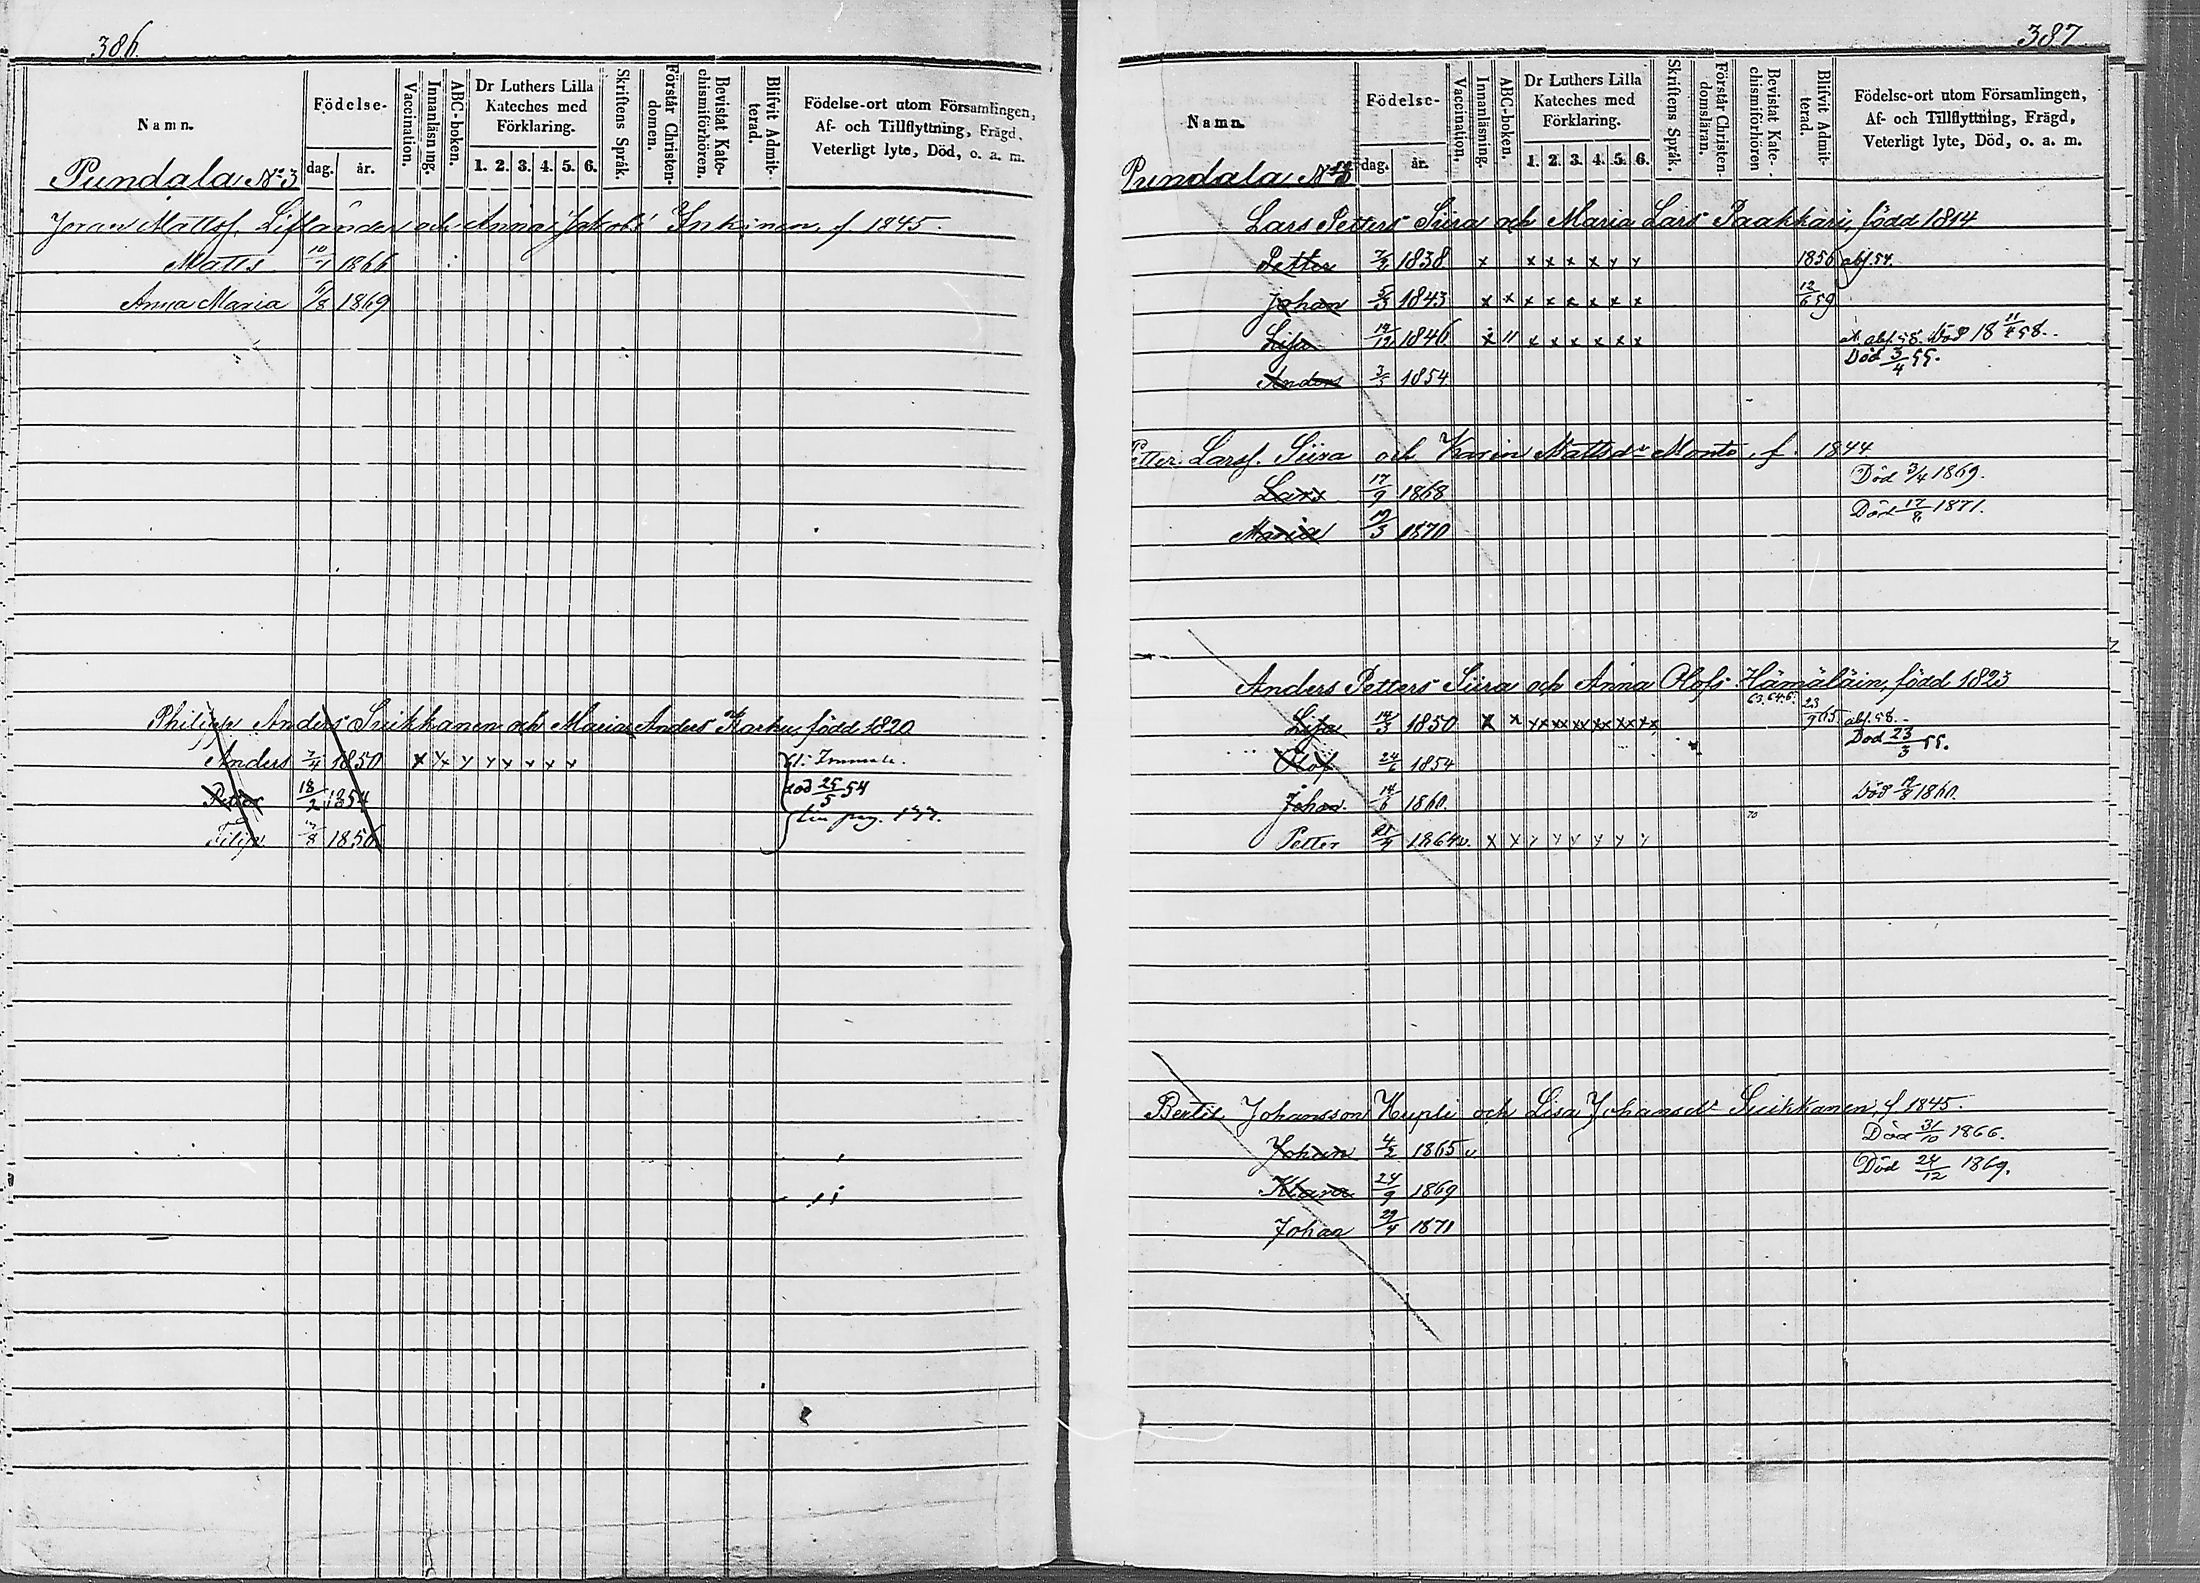 386.
Namn.
Födelse-
dag. år.
Vaccination.
Innanläsning.
ABC-boken.
Dr Luthers Lilla Kateches med Förklaring.
1. 2. 3. 4. 5. 6.
Skriftens Språk.
Förstår Christendomen.
Bevistat Katechismiförhören.
Blifvit Admitterad.
Födelse-ort utom Församlingen,
Af- och Tillflyttning, Frägd,
Veterligt lyte, Död, o. a. m.
Pundala No 3
Jöran Mattsf. Liflander och Anna Jakobs Inkinen, f 1845.
Matts 1866
Anna Maria 1869
Philipp Anders Suikkanen och Maria Anders Karhu, född 1820
Anders 1850 x x x x x x x x
Petter 18/2 1854 död 25/5 54
Filip 1856
387
Namn.
Födelse-
dag. år.
Vaccination.
Innanläsning.
ABC-boken.
Dr Luthers Lilla Kateches med Förklaring.
1. 2. 3. 4. 5. 6.
Skriftens Språk.
Förstår Christendomsläran.
Bevistat Katechismiförhören
Blifvit Admitterad.
Födelse-ort utom Församlingen,
Af- och Tillflyttning, Frägd,
Veterligt lyte, Död, o. a. m.
Pundala No
Lars Petters Siira och Maria Lars Paakkari, född 1814
Petter 1838 x x x x x x x 1856 abs. 54.
Johan 5/3 1843 x x x x x x x x 12/6 59
Lisa 1846 x " x x x x x x abs. 58. Död 18 11/4 58.
Anders 1854 Död 3/4 55.
Petter Larsf. Siira och Karin Mattsdr Monto, f. 1844
Lars 17/9 1868 Död 3/4 1869.
Maria 1870 Död 17/8 1871.
Anders Petters Siira och Anna Olofs Hämäläin, född 1823
Lisa 1850 x x xx xx xx xx xx xx 23/9 65 abs. 58.
Olof 24/6 1854 Död 23/3 55.
Johan 14/6 1860. Död 1860.
Petter 1864 v. x x x x x x x x
Bertil Johansson Hupli och Lisa Johansdr Suikkanen, f 1845.
Johan 4/2 1865 v Död 31/10 1866.
Klara 24/9 1869 Död 24/12 1869.
Johan 29/4 1871